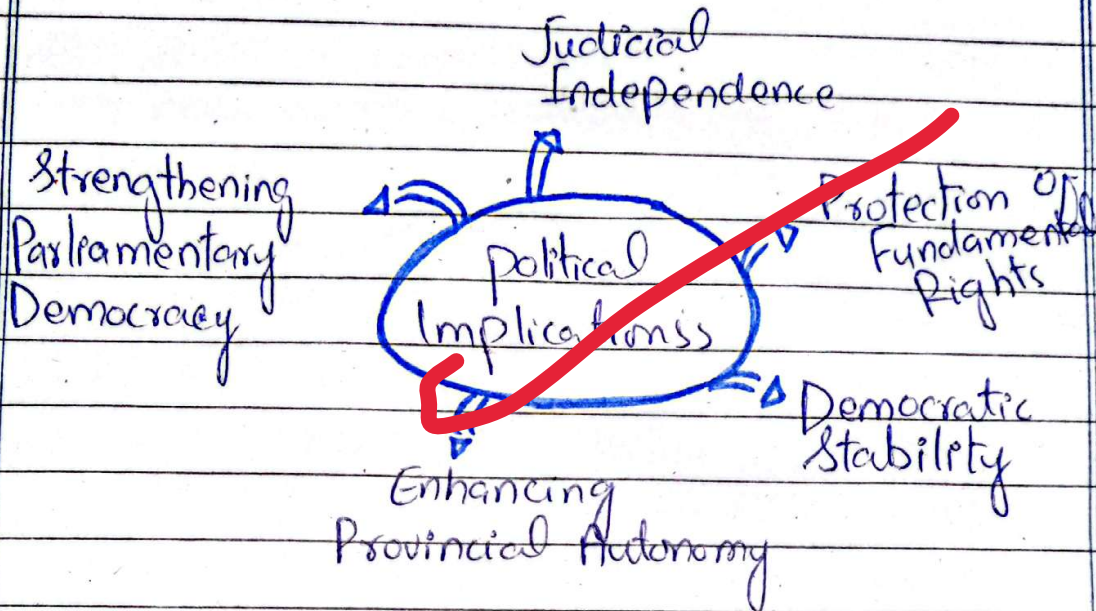 Judicial
Independence
Strengthening
Parliamentary
Democracy
Political
Implicationss
Protection of
Fundamental
Rights
Democratic
Stability
Enhancing
Provincial Autonomy